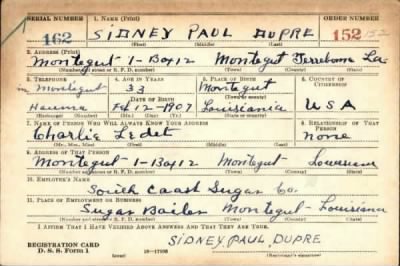 SERIAL NUMBER 1. NAME (Print) ORDER NUMBER
162 SIDNEY PAUL DUPRE 152 152
(First) (Middle) (Last)
2. ADDRESS (Print)
Montegut 1-Box 12 Montegut Terrebonne La.
(Town) (County) (State)
3. TELEPHONE 4. AGE IN YEARS 5. PLACE OF BIRTH 6. COUNTRY OF CITIZENSHIP
in Montegut 33 Montegut
DATE OF BIRTH (Town or county)
Houma Feb 12-1907 Louisiania U S A
(Exchange) (Number) (Mo.) (Day) (Yr.) (State or country)
7. NAME OF PERSON WHO WILL ALWAYS KNOW YOUR ADDRESS 8. RELATIONSHIP OF THAT PERSON
Charlie Ledet none
(Mr., Mrs., Miss) (First) (Middle) (Last)
9. ADDRESS OF THAT PERSON
Montegut 1-Box 12 Montegut
(Town) (County) (State)
10. EMPLOYER'S NAME
South Coast Sugar Co.
11. PLACE OF EMPLOYMENT OR BUSINESS
Sugar Montegut - Louisiana
(Town) (County) (State)
I AFFIRM THAT I HAVE VERIFIED ABOVE ANSWERS AND THAT THEY ARE TRUE.
REGISTRATION CARD SIDNEY, PAUL, DUPRE
D. S. S. Form 1 (Registrant's signature)